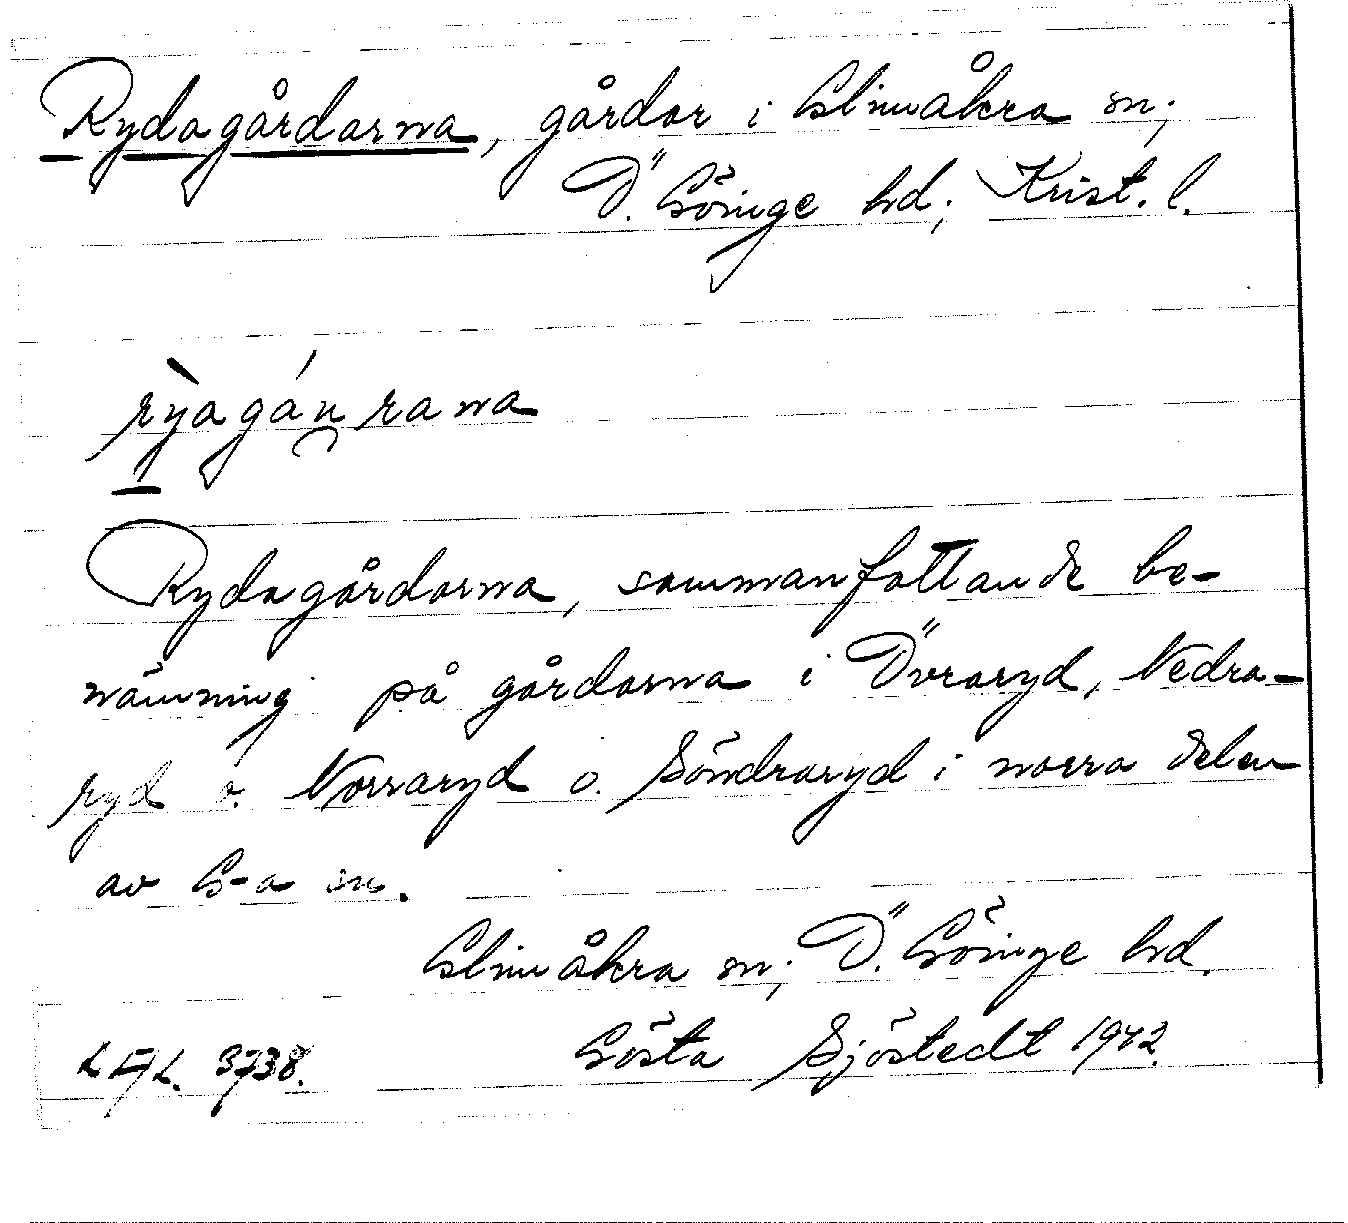 Rydagårdarna, gårdar i Glimåkra sn;
Ö. Göinge hd; Krist. l.
rỳagánrana
Rydagårdarna, sammanfattande be-
nämning på gårdarna i Övraryd, Nedra-
ryd o. Norraryd o. Söndraryd i norra delen
av G-a sn.
Glimåkra sn; Ö. Göinge hd.
Gösta Sjöstedt 1942.
3738.